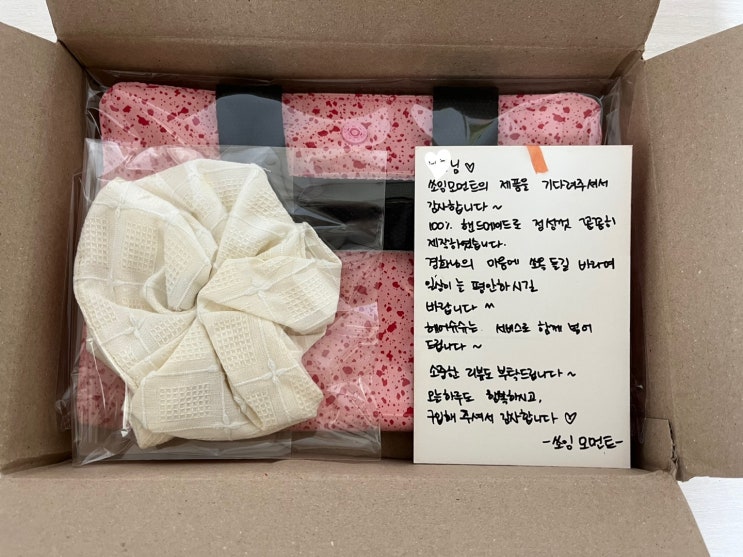 님 ♡
쏘잉모먼트의 제품을 기다려주셔서
감사합니다 ~
100% 핸드메이드로 정성껏 꼼꼼히
제작하였습니다.
경화님의 마음에 쏘옥 들길 바라며
는 평안하시길
바랍니다 ^^
헤어슈슈는 서비스로 함께 넣어
드립니다 ~
소중한 리뷰도 부탁드립니다 ~
오늘하루도 행복하시고,
구입해 주셔서 감사합니다 ♡
-쏘잉 모먼트-